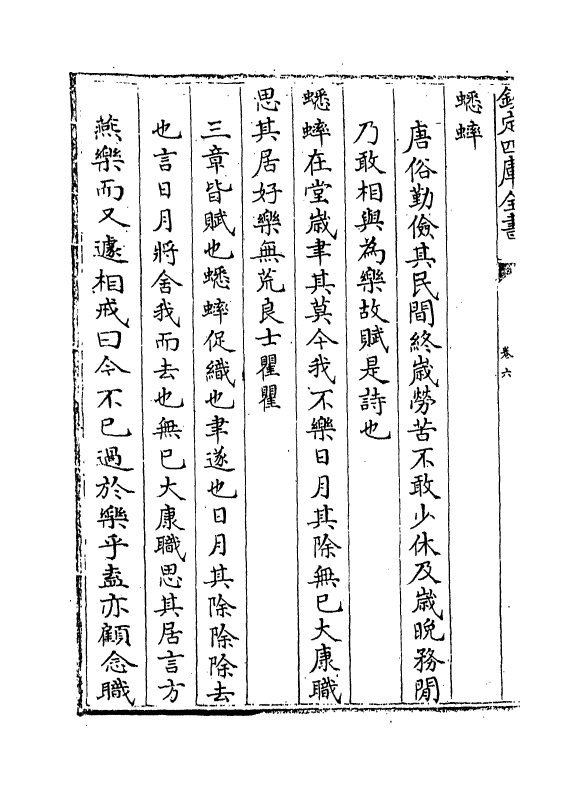 欽定四庫全書
卷六
蟋蟀
唐俗勤儉其民間終歲勞苦不敢少休及歲晚務閒
乃敢相與為樂故賦是詩也
蟋蟀在堂歲聿其莫今我不樂日月其除無已大康職
思其居好樂無荒良士瞿瞿
三章皆賦也蟋蟀促織也聿遂也日月其除除除去
也言日月將舍我而去也無已大康職思其居言方
燕樂而又遽相戒曰今不已過於樂乎盍亦顧念職